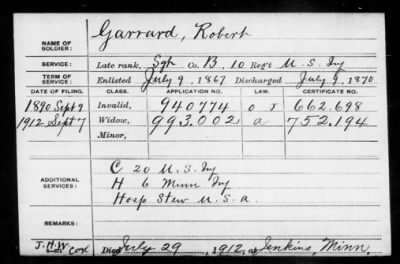 Garrard, Robert
NAME OF SOLDIER:
SERVICE: Late rank, Sgt Co. B, 10 Reg't U. S. Inf
TERM OF SERVICE: Enlisted July 9, 1867 Discharged July 9, 1870
DATE OF FILING. CLASS. APPLICATION NO. LAW. CERTIFICATE NO.
1890 Sept 9 Invalid, 940774 662.698
1912 Sept 7 Widow, 993.002 a 752.194
Minor,
ADDITIONAL SERVICES:
C 20 U. S. Inf
H 6 Minn Inf
Hosp Stew U. S. a.
REMARKS:
J.H.W. Cox Died July 29, 1912, at Jenkins, Minn.